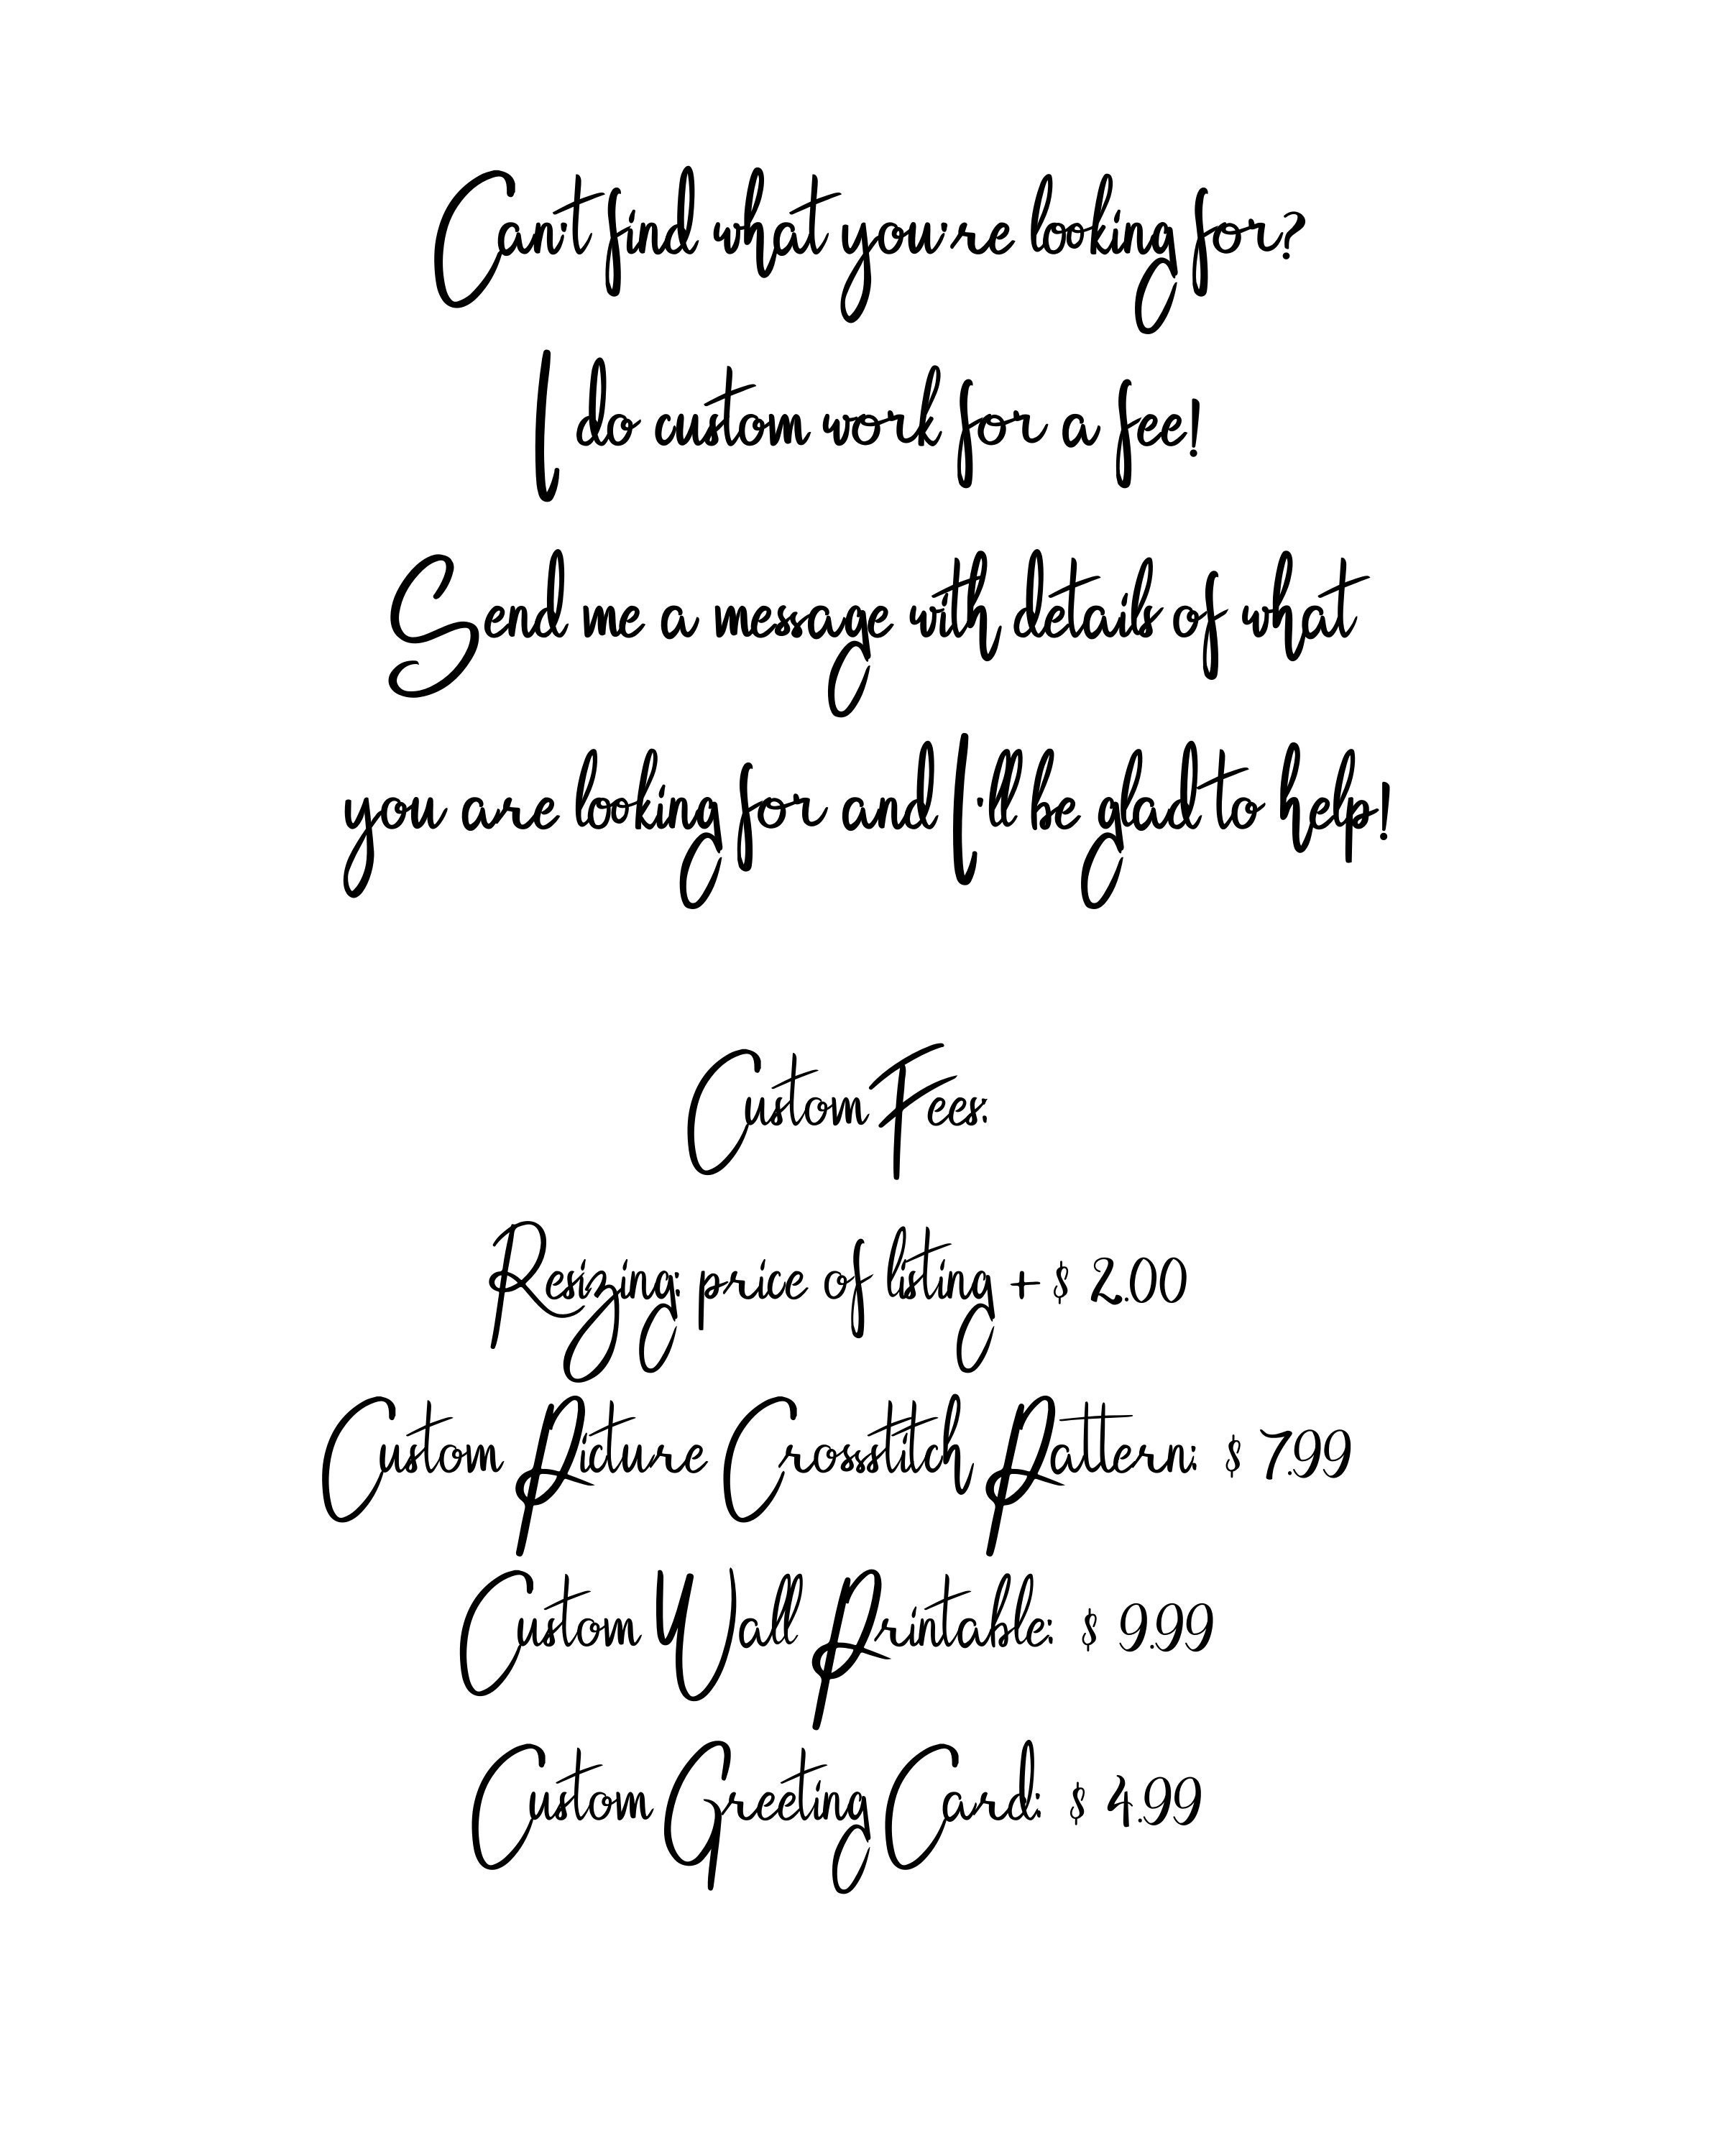 Can't find what you're looking for?
I do custom work for a fee!
Send me a message with details of what
you are looking for and I'll be glad to help!
Custom Fees:
Resizing: price of listing + $ 2.00
Custom Picture Crosstitch Pattern: $ 7.99
Custom Wall Printable: $ 9.99
Custom Greeting Card: $ 4.99